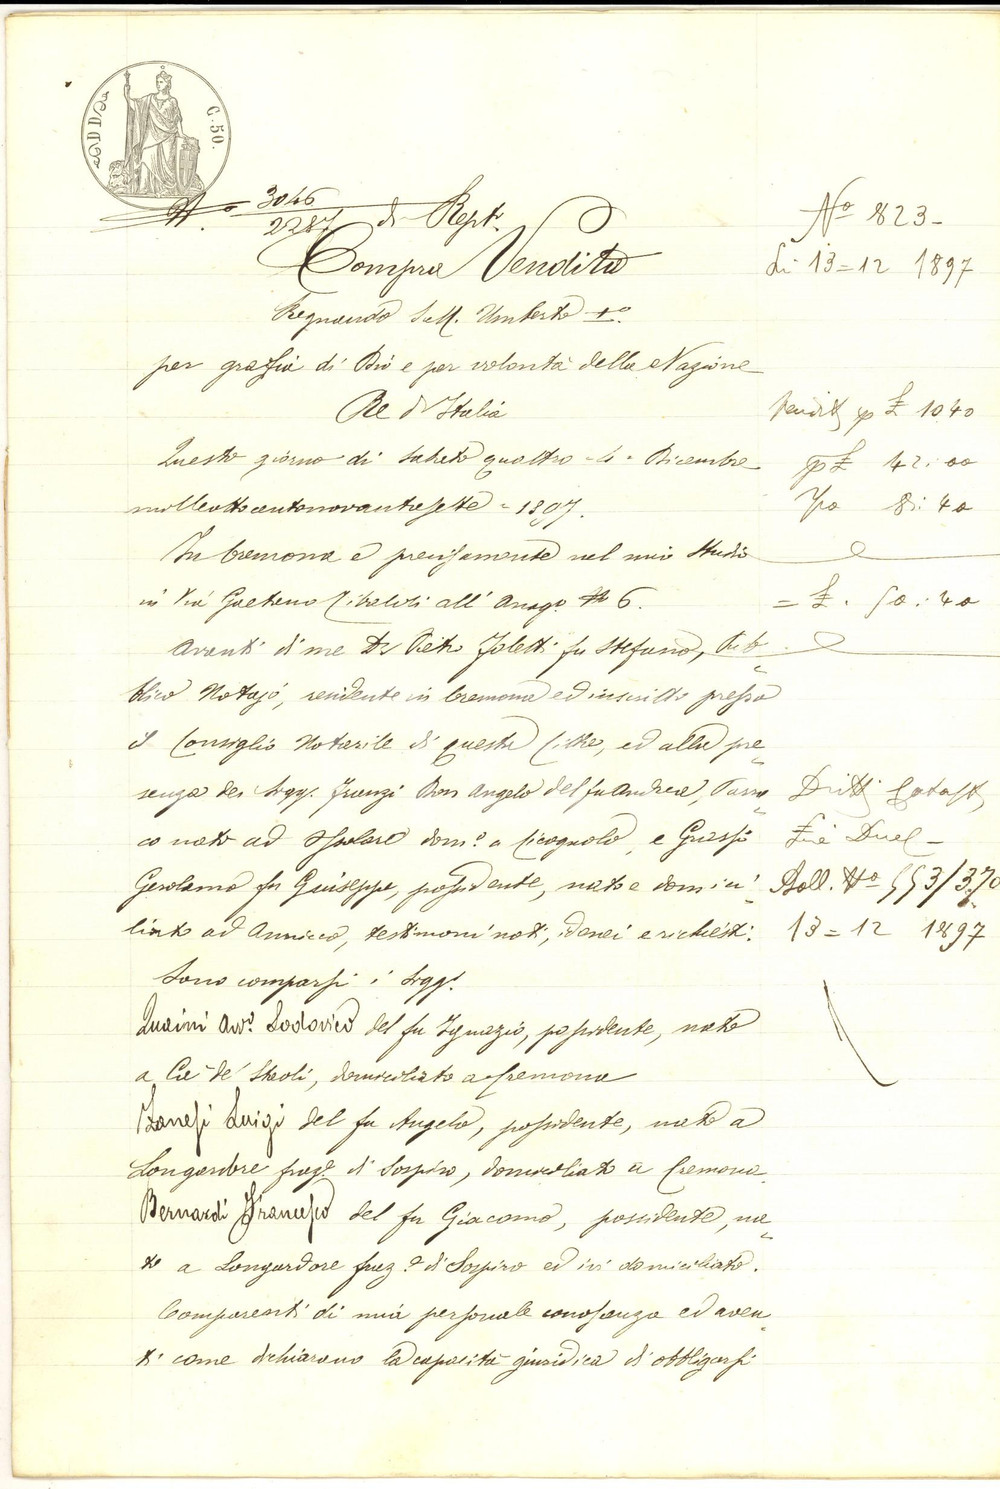 C. 50.
N.º 3046/2287 di Rept.º
Compra Vendita
Regnando S. M. Umberto 1º
per grazia di Dio e per volontà della Nazione
Re d'Italia
Questo giorno di sabato quattro - 4 - Dicembre
milleottocentonovantasette = 1897.
In Cremona e precisamente nel mio Studio
in Via Gaetano Tibaldi all'Anag. Nº 6.
Avanti di me Dr Pietro Foletti fu Stefano, Pub=
blico Notajo, residente in Cremona ed inscritto presso
il Consiglio Notarile di questa Città, ed alla pre=
senza dei Sigg. Don Angelo del fu Andrea, Parro=
co nato ad domº a Cicognolo, e Grassi
Gerolamo fu Giuseppe, possidente, nato e domici=
liato ad Annicco, testimoni noti, idonei e richiesti.
Sono comparsi i Sigg.
Quaini Avv. Lodovico del fu Ignazio, possidente, nato
a Ca de' Staoli, domiciliato a Cremona
Zanesi Luigi del fu Angelo, possidente, nato a
Longardore fraz.e di Sospiro, domiciliato a Cremona.
Bernardi Francesco del fu Giacomo, possidente, na=
to a Longardore fraz.e di Sospiro ed ivi domiciliato.
Comparenti di mia personale conoscenza ed aven=
ti come dichiarano la capacità giuridica di obbligarsi
Nº 823-
Li 13=12 1897
£ 1040
£ 42:00
8:40
= £. 50:40
Dritti Catast.
Lire Due -
Boll. Nº 553/370
13=12 1897